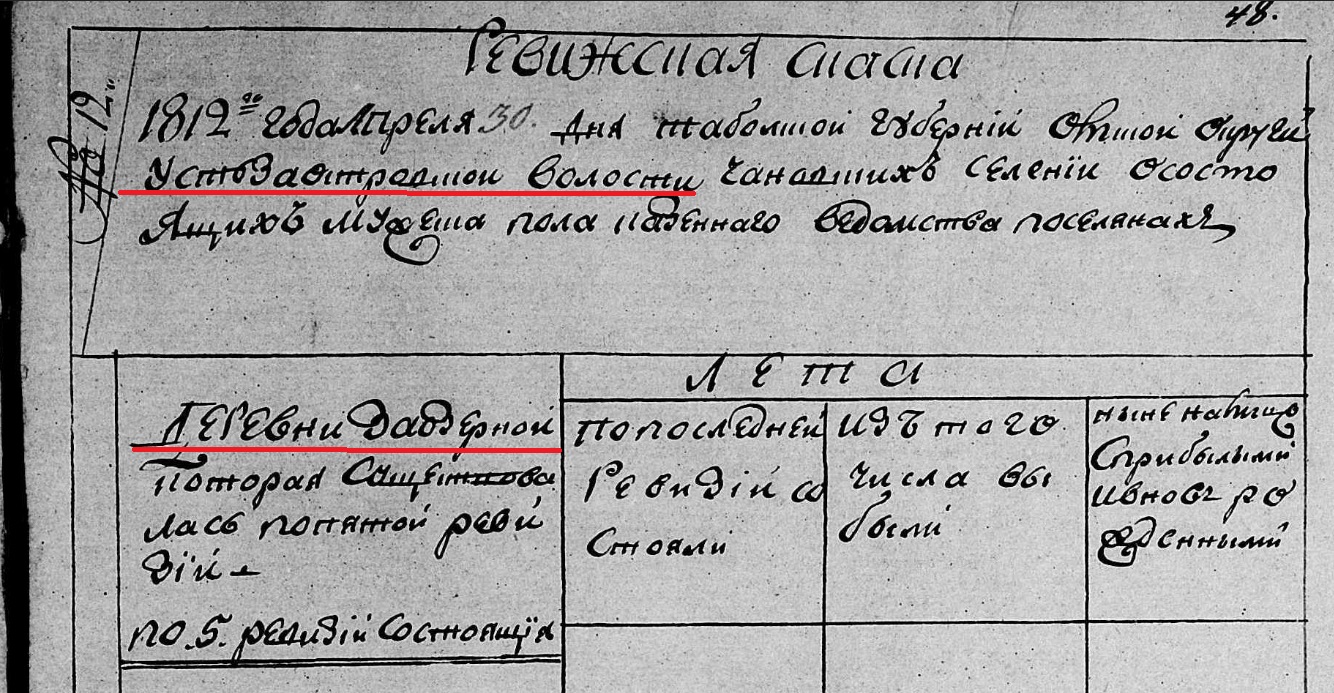 48.
Ревижская скаска
№ 12
1812го года Апреля 30. дня Табольской губерніи Омской округи
Устьзаостровской волости селеніи о состо
ящихъ мужеска пола казеннаго ведомства поселянахъ
Лета
Деревни Заозерной
Которая
лась по пятой реви
зіи
по.5. ревизіи состоящія
по последней
ревизіи со
стояли
изъ того
числа вы
были
ныне налицо
с прибылыми
и вновь ро
жденными